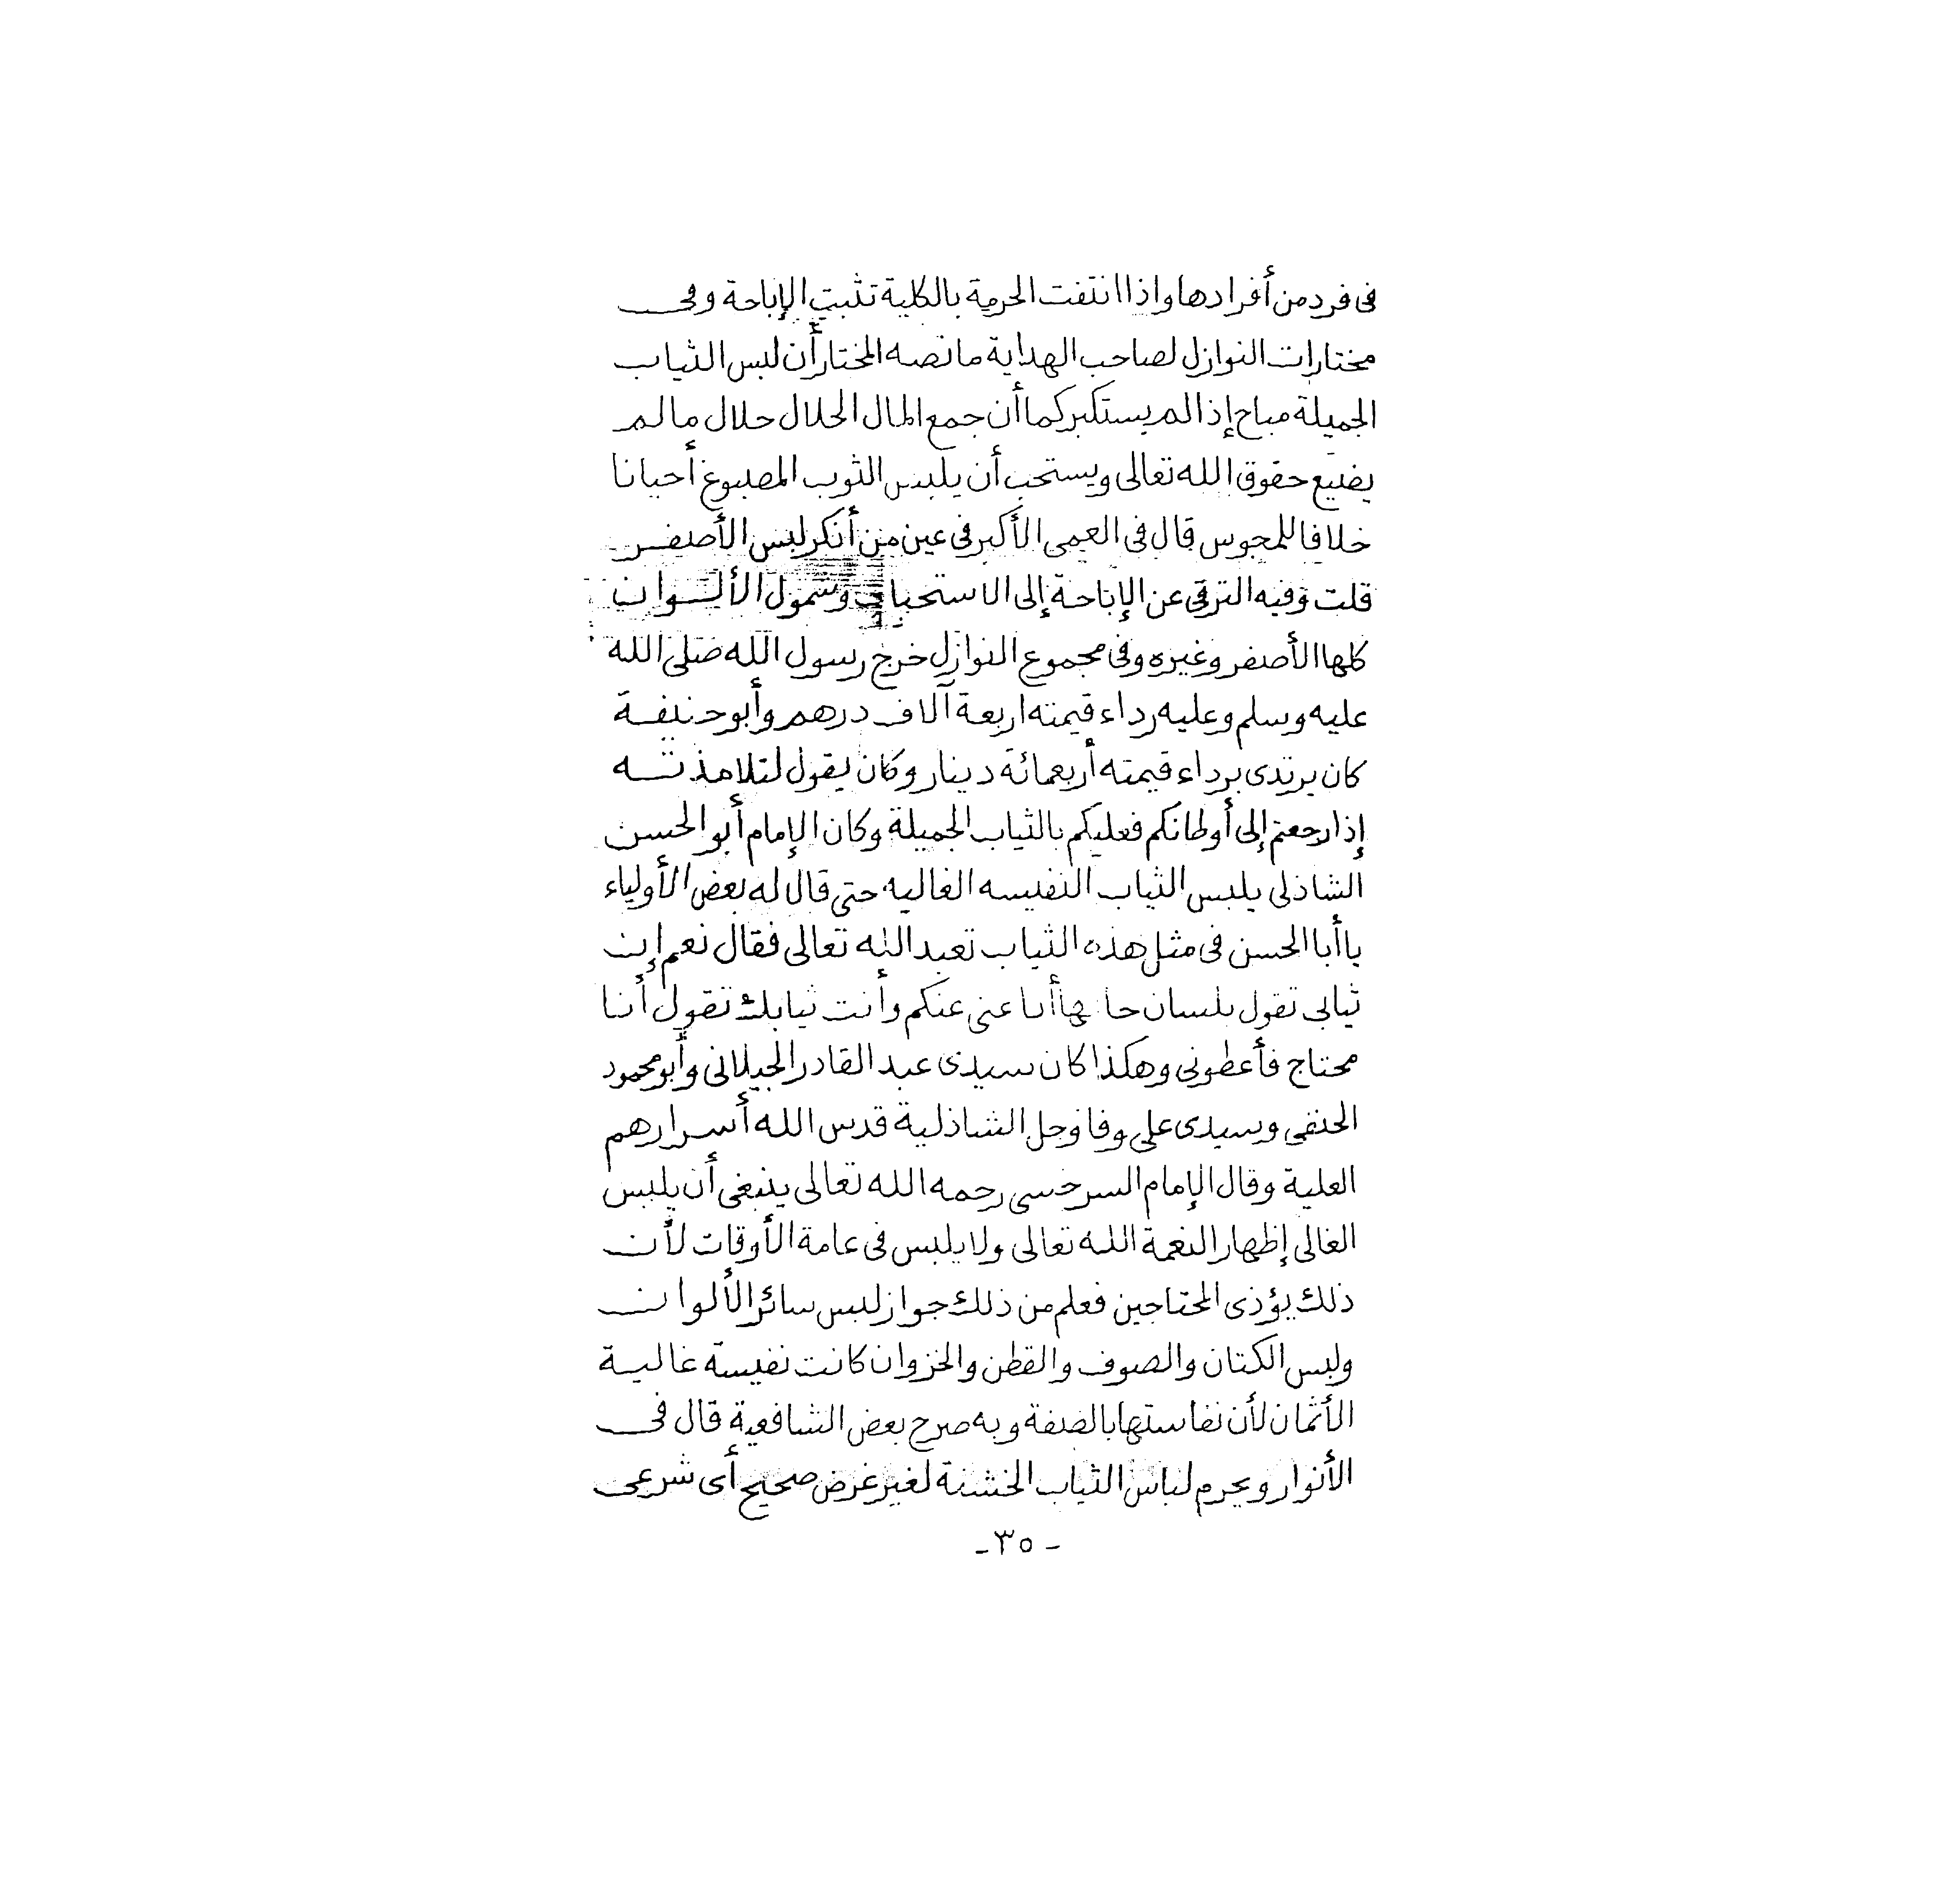 فى فرد من أفرادها واذا انتفت الحرمة بالكلية تثبت الإباحة وفى
مختارات النوازل لصاحب الهداية ما نصه المختار أن لبس الثياب
الجميلة مباح إذا لم يستكبر كما أن جمع المال الحلال حلال ما لم
يضيع حقوق الله تعالى ويستحب أن يلبس الثوب المصبوغ أحيانا
خلافا للمجوس قال فى العمى الأكبر فى عين من أنكر لبس الأصفر
قلت وفيه الترقى عن الإباحة إلى الاستحباب وشمول الألوان
كلها الأصفر وغيره وفى مجموع النوازل خرج رسول الله صلى الله
عليه وسلم وعليه رداء قيمته اربعة آلاف درهم وأبو حنيفة
كان يرتدى برداء قيمته أربعمائة دينار وكان يقول لتلامذته
إذا رجعتم إلى أوطانكم فعليكم بالثياب الجميلة وكان الإمام أبو الحسن
الشاذلى يلبس الثياب النفيسه الغاليه حتى قال له بعض الأولياء
يا أبا الحسن فى مثل هذه الثياب تعبد الله تعالى فقال نعم إن
ثيابى تقول بلسان حالها أنا غنى عنكم وأنت ثيابك تقول أنا
محتاج فأعطونى وهكذا كان سيدى عبد القادر الجيلانى وأبو محمود
الحنفى وسيدى على وفا وجل الشاذلية قدس الله أسرارهم
العلية وقال الإمام السرخسى رحمه الله تعالى ينبغى أن يلبس
الغالى إظهار النعمة الله تعالى ولا يلبس فى عامة الأوقات لأن
ذلك يؤذى المحتاجين فعلم من ذلك جواز لبس سائر الألوان
ولبس الكتان والصوف والقطن والخز وان كانت نفيسة غالية
الأثمان لأن نفاستها بالصنعة وبه صرح بعض الشافعية قال فى
الأنوار ويحرم لباس الثياب الخشنة لغير غرض صحيح أى شرعى
- ٣٥ -